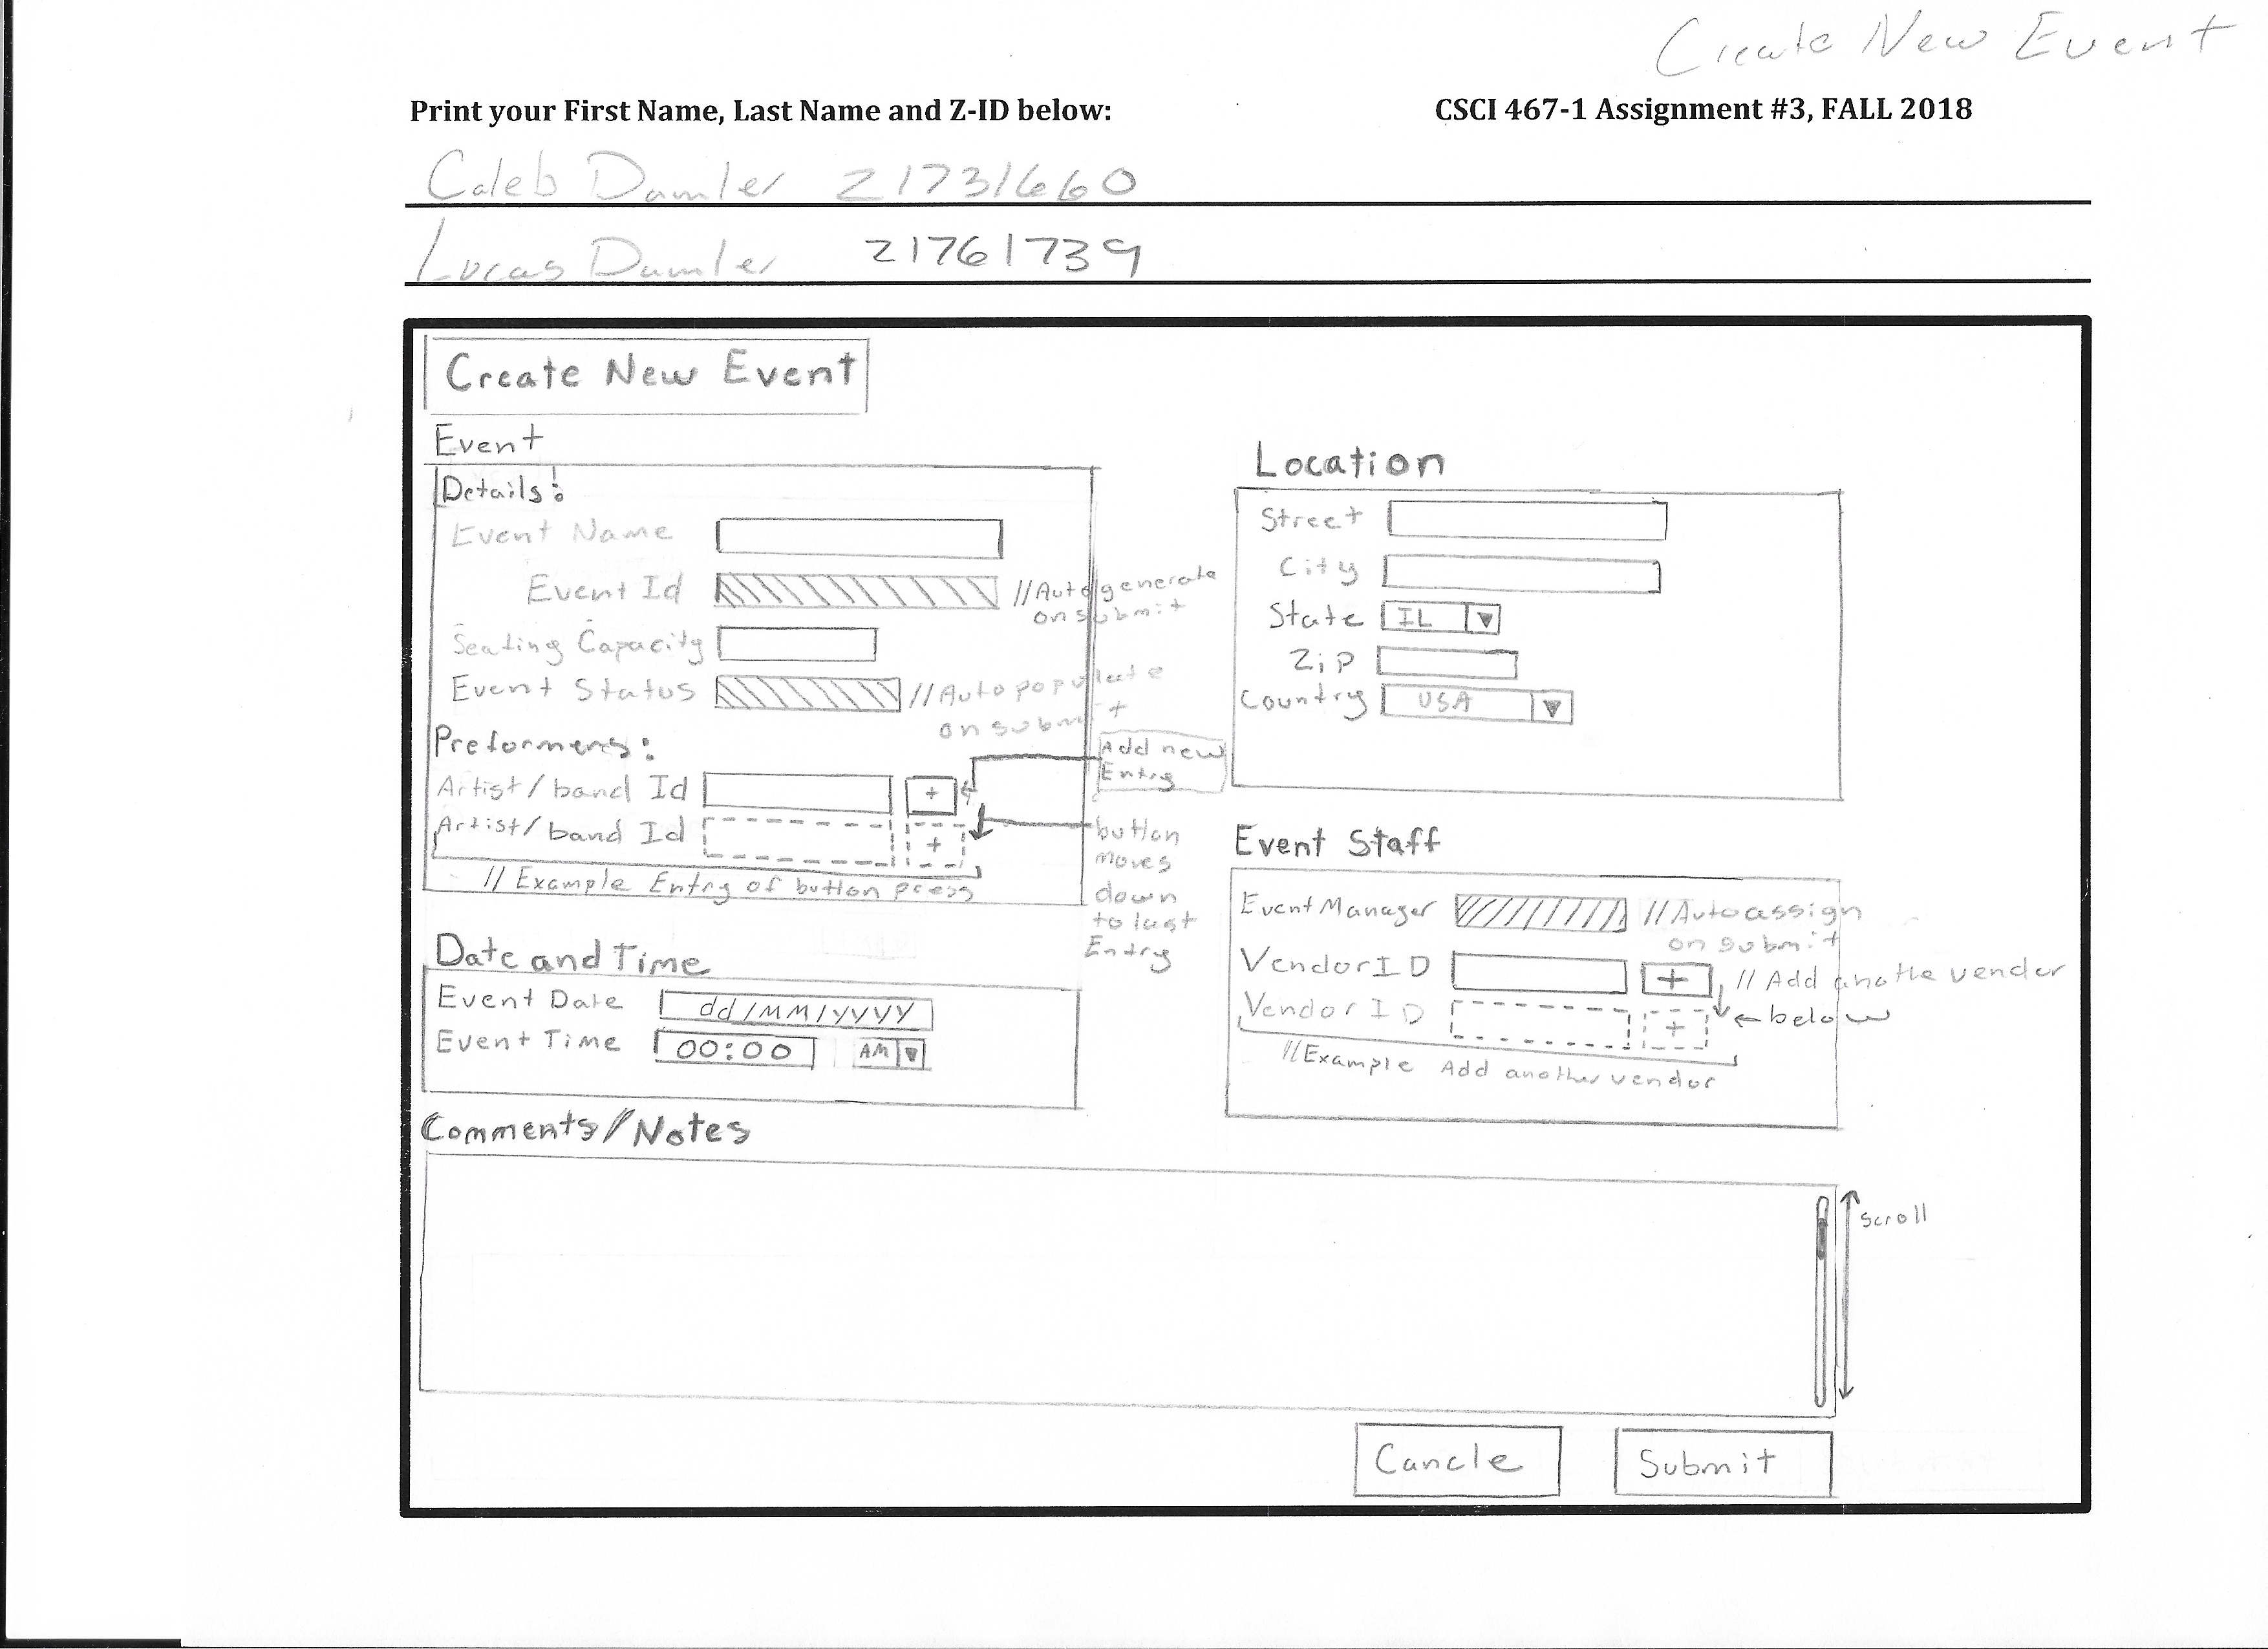 Create New Event
Print your First Name, Last Name and Z-ID below:
CSCI 467-1 Assignment #3, FALL 2018
Caleb Damler Z1731660
Lucas Damler Z1761739
Create New Event
Event
Details:
Event Name
Event Id //Auto generate
on submit
Seating Capacity
Event Status //Auto populate
on submit
Preformers:
Add new
Entry
Artist/band Id +
Artist/band Id +
// Example Entry of button press
button
moves
down
to last
Entry
Date and Time
Event Date dd/MM/yyyy
Event Time 00:00 AM ▼
Location
Street
City
State IL ▼
Zip
Country USA ▼
Event Staff
Event Manager //Auto assign
on submit
Vendor ID + // Add anothe vender
Vendor ID + ← below
//Example Add another vendor
Comments/Notes
scroll
Cancle Submit